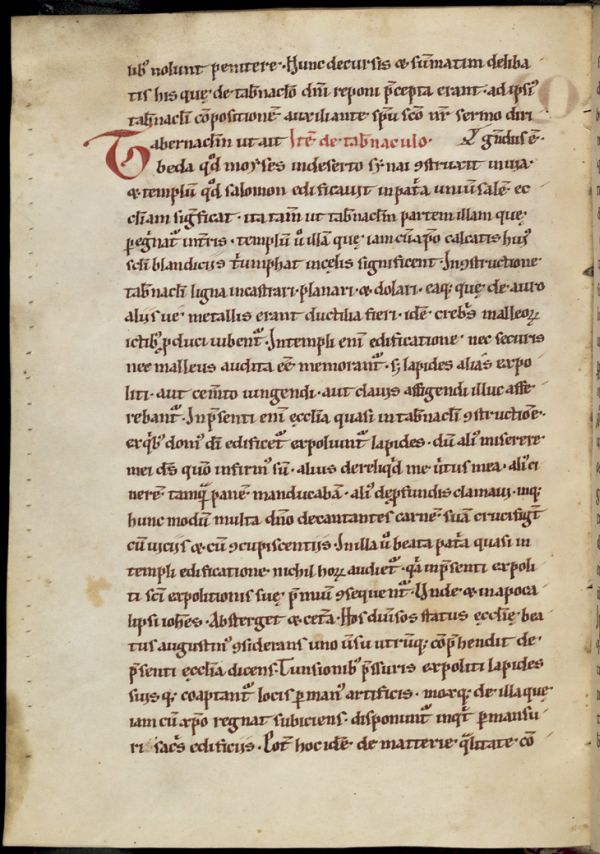 libꝰ nolunt penitere · Hunc decursis & sūmatim deliba
tis his quę de tab̄naclo dn̄i reponi p̄cepta erant · ad ipsiꝰ
tab̄nacli cōpositionē auxiliante sp̄u sc̄o nr̄ sermo diri
Tabernaclm̄ ut ait Itē de tab̄naculo · gendus ē ·
beda qd̄ moyses in deserto synai ꝯstruxit in uia ·
& templū qd̄ salomon edificauit in patͥa unū salē · ec
cl̄iam significat · ita tam̄ ut tab̄naclm̄ partem illam quę
pegͥnatᷣ in tr̄is · templū ū illā quę iam cū xp̄o calcatis huiꝰ
sc̄li blandiciis tͥumphat in cęlis significent · In ꝯstructione
tab̄nacli ligna incastrari · planari · & dolari · eaq; quę de auro
aliis ue metallis erant ductilia fieri · idē crebͥs malleoꝝ
ictibꝰ ꝓduci iubentᷣ · In templi enī edificatione · nec securis
nec malleus audita eē memorantᷣ · sꝫ lapides alias expo
liti · aut cem̄to iungendi · aut clauis affigendi illuc affe
rebantᷣ · In p̄senti enī ęcclīa quasi in tab̄nacli ꝯstructiōe ·
ex qͥbꝰ domꝰ dī edificetᷣ expoliunt lapides · dū aliꝰ miserere
mei ds̄ quō infirmꝰ sū · alius dereliqͥd me uͥtus mea · aliꝰ ci
nerē tamqͣ panē manducabā · aliꝰ de ꝓfundis clamaui · inq;
hunc modū multa dn̄o decantantes carnē suā crucifigt̄
cū uiciis & cū ꝯcupiscentiis · In illa ū beata patͥa quasi in
templi edificatione nichil hoꝝ audietᷣ · qͥa in p̄senti expoli
ti sc̄i expolitionis suę p̄miū ꝯsequentᷣ · Unde & in apoca
lipsi ioh̄es · Absterget & cet̄a · Hos diūsos status ęcclīę bea
tus augustinꝰ ꝯsiderans uno ūsu utrūq; cōp̄hendit de
p̄senti ęcclīa dicens · Tunsionibꝰ p̄ssuris expoliti lapides
suis q; coaptantᷣ locis ꝑ manꝰ artificis · mox q; de illa quę
iam cū xp̄o regnat subiciens · disponuntᷣ inqͥt ꝑmansu
ri sacͥs edificiis · Pot̄ hoc idē de matterie qͣlitate · cō